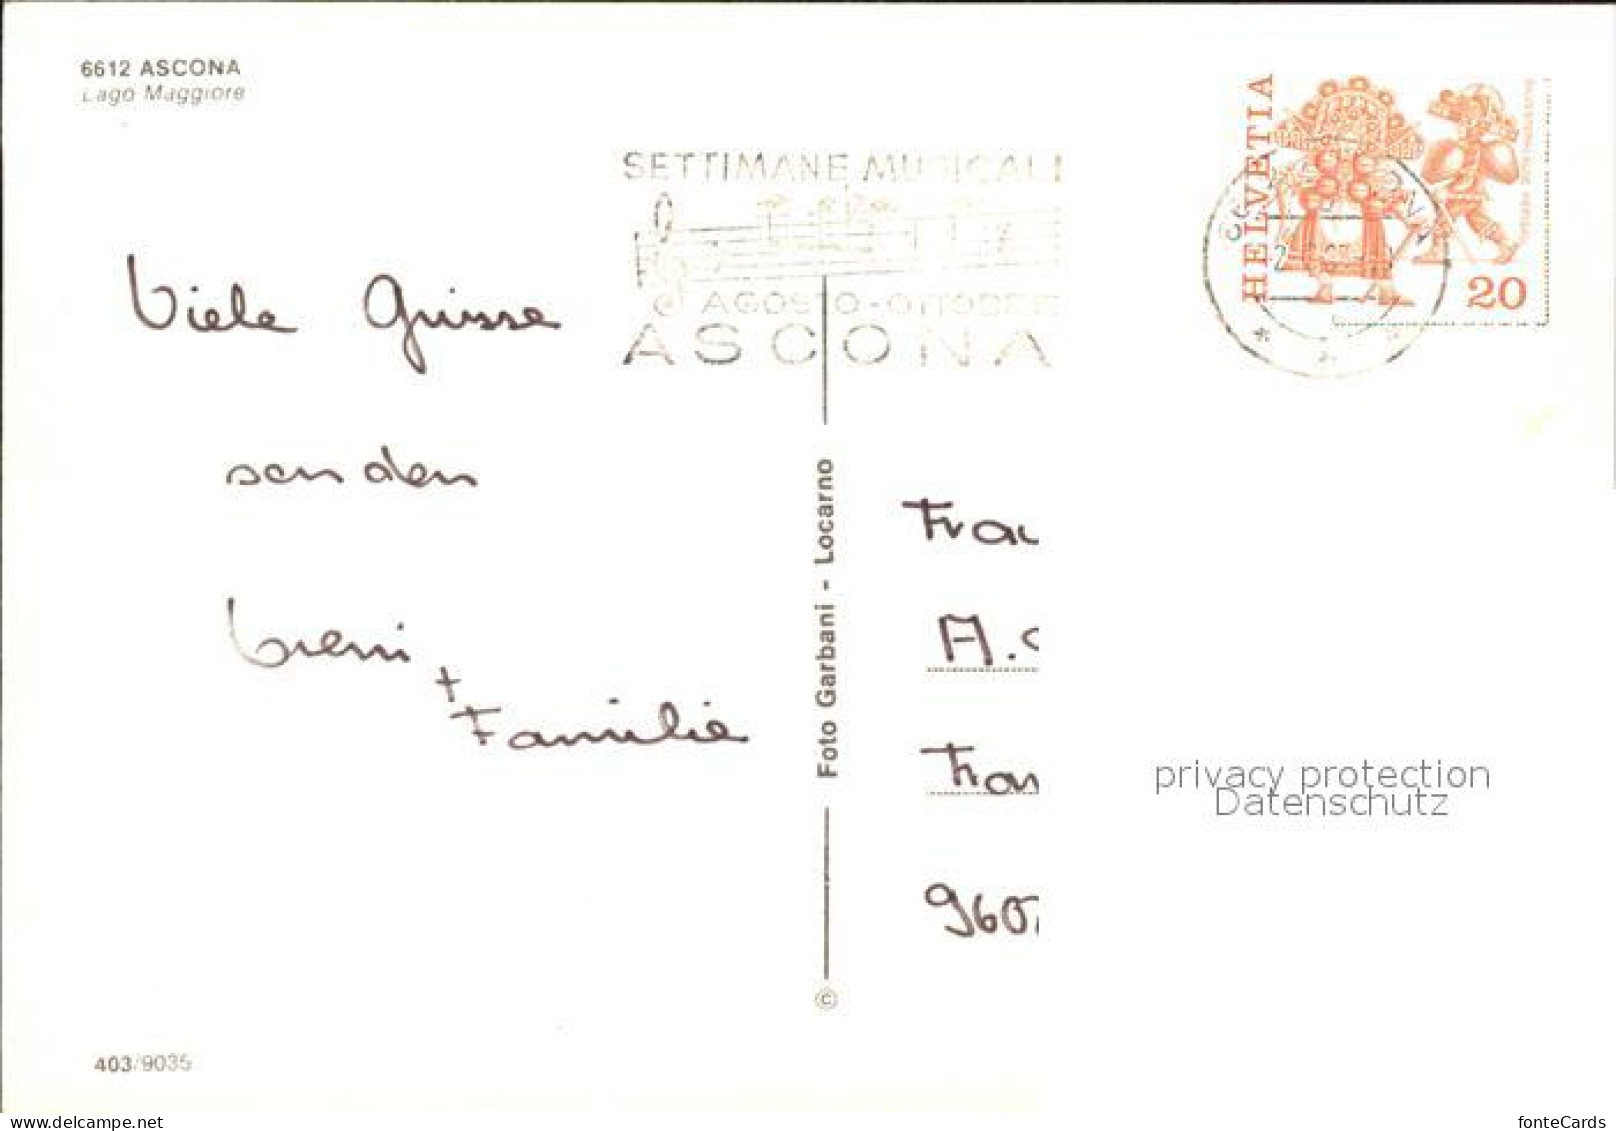 6612 ASCONA
Lago Maggiore
SETTIMANE MUSICALI
AGOSTO-OTTOBRE
ASCONA
HELVETIA
20
Viele Grüsse
senden
Vreni
+
Familie
Foto Garbani - Locarno
©
Frau
A.
960
privacy protection
Datenschutz
403/9035
www.delcampe.net
fonteCards